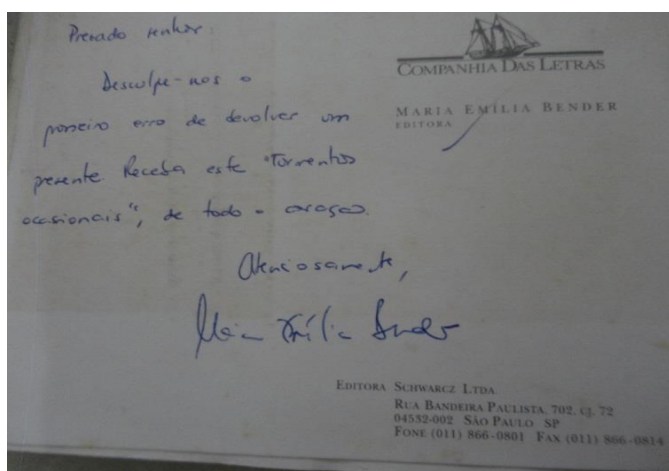 Prezado senhor:
Desculpe-nos o
primeiro erro de devolver um
presente. Receba este "Tormentos
ocasionais", de todo o coração.
Atenciosamente,
Maria Emília Bender
COMPANHIA DAS LETRAS
MARIA EMÍLIA BENDER
EDITORA
EDITORA SCHWARCZ LTDA.
RUA BANDEIRA PAULISTA, 702, CJ. 72
04532-002 SÃO PAULO SP
FONE (011) 866-0801 FAX (011) 866-0814